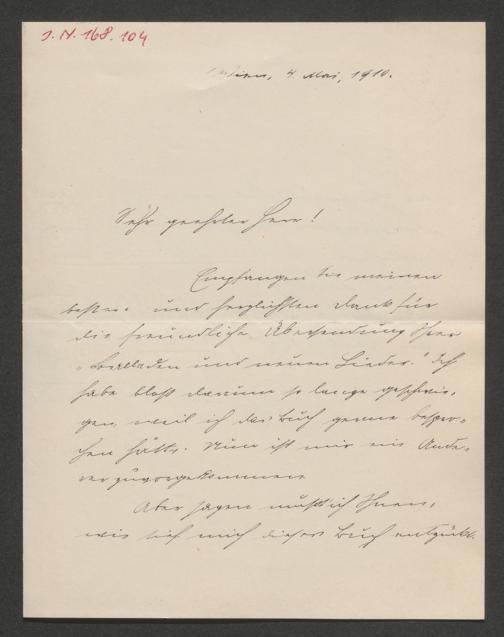 J. N. 168.104
Wien, 4. Mai, 1910.
Sehr geehrter Herr!
Empfangen Sie meinen
besten und herzlichsten Dank für
die freundliche Übersendung Ihrer
„Balladen und neuen Lieder." Ich
habe bloß darum so lange geschwie-
gen, weil ich das Buch gerne bespro-
chen hätte. Nun ist mir ein Ande-
rer zuvorgekommen.
Aber sagen muß ich Ihnen,
wie sich mich dieses Buch entzückt.